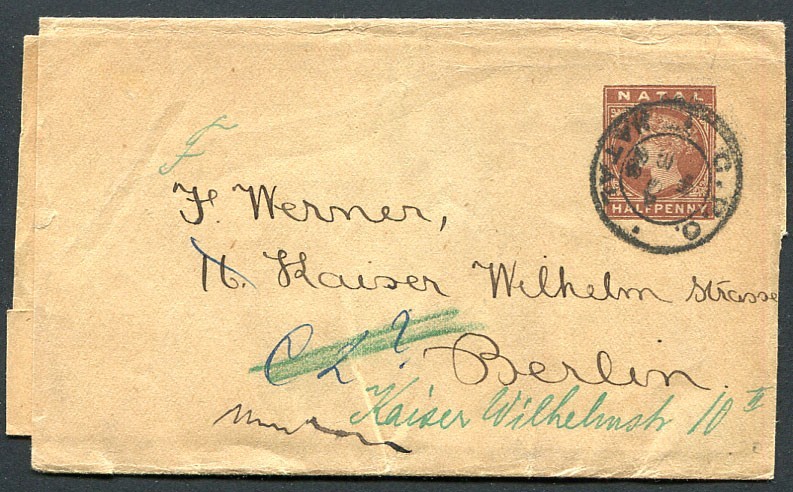 NATAL
HALFPENNY
G.P.O. NATAL
F
F. Werner,
16. Kaiser Wilhelm Strasse
C 2 ?
Berlin.
Kaiser Wilhelmstr 10 II